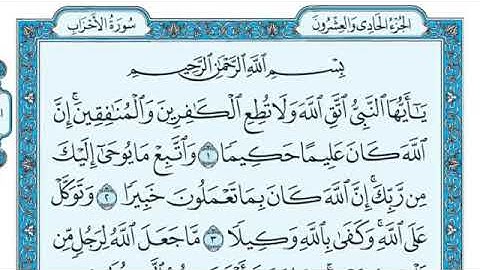 الجزء الحادي والعشرون
سورة الأحزاب
بِسْمِ اللَّهِ الرَّحْمَٰنِ الرَّحِيمِ
يَٰٓأَيُّهَا النَّبِيُّ اتَّقِ اللَّهَ وَلَا تُطِعِ الْكَٰفِرِينَ وَالْمُنَٰفِقِينَ ۗ إِنَّ
اللَّهَ كَانَ عَلِيمًا حَكِيمًا ١ وَاتَّبِعْ مَا يُوحَىٰٓ إِلَيْكَ
مِن رَّبِّكَ ۚ إِنَّ اللَّهَ كَانَ بِمَا تَعْمَلُونَ خَبِيرًا ٢ وَتَوَكَّلْ
عَلَى اللَّهِ ۚ وَكَفَىٰ بِاللَّهِ وَكِيلًا ٣ مَّا جَعَلَ اللَّهُ لِرَجُلٍ مِّن